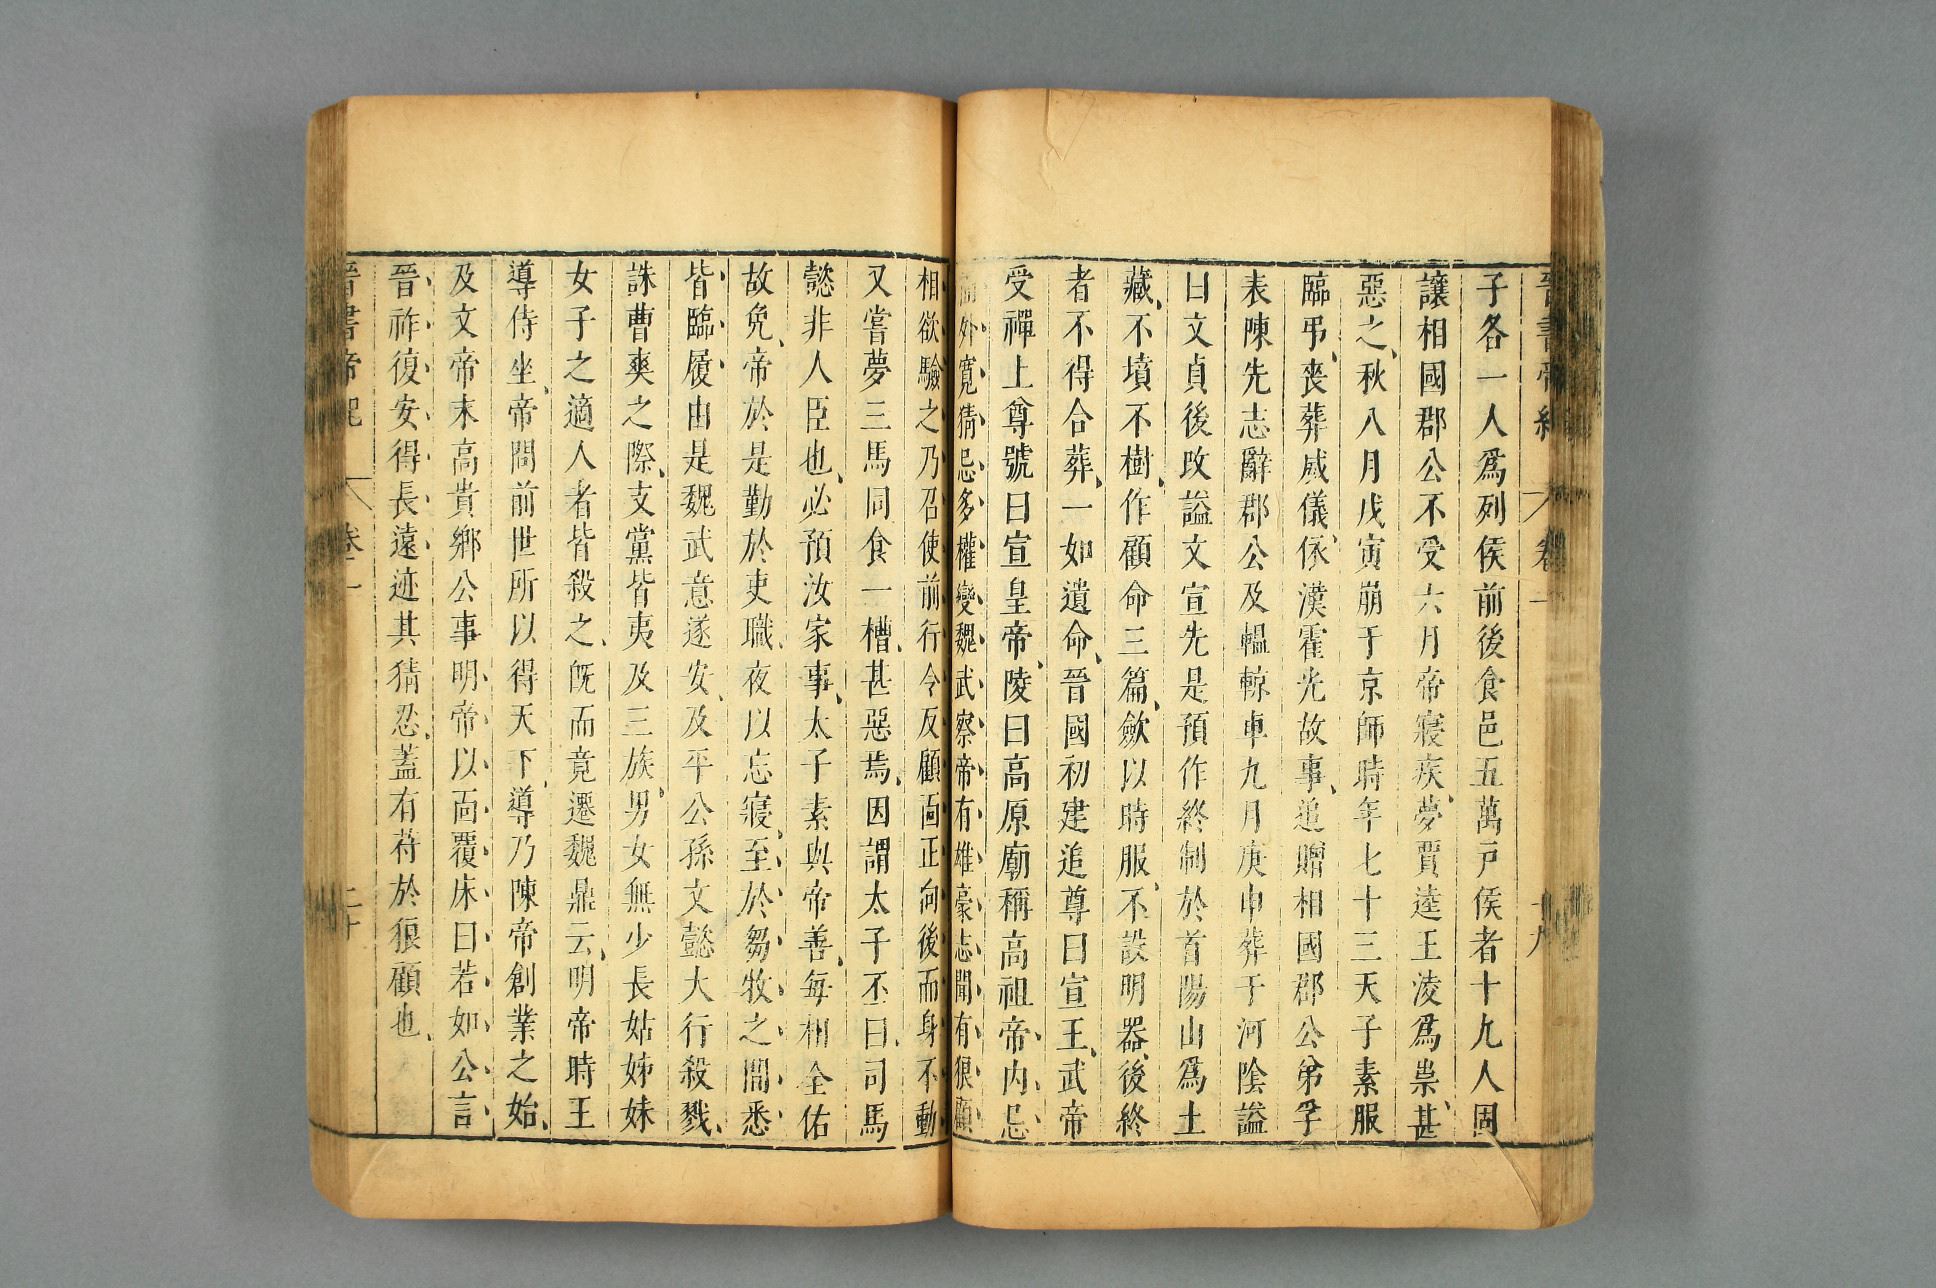 晉書帝紀 卷一 十九
子各一人爲列侯前後食邑五萬戸侯者十九人固
讓相國郡公不受六月帝寢疾夢賈逵王凌爲祟甚
惡之秋八月戊寅崩于京師時年七十三天子素服
臨弔喪葬威儀依漢霍光故事追贈相國郡公弟孚
表陳先志辭郡公及轀輬車九月庚申葬于河陰謚
曰文貞後改謚文宣先是預作終制於首陽山爲土
藏不墳不樹作顧命三篇斂以時服不設明器後終
者不得合葬一如遺命晉國初建追尊曰宣王武帝
受禪上尊號曰宣皇帝陵曰高原廟稱高祖帝内忌
而外寬猜忌多權變魏武察帝有雄豪志聞有狼顧
相欲驗之乃召使前行令反顧面正向後而身不動
又嘗夢三馬同食一槽甚惡焉因謂太子丕曰司馬
懿非人臣也必預汝家事太子素與帝善每相全佑
故免帝於是勤於吏職夜以忘寢至於芻牧之間悉
皆臨履由是魏武意遂安及平公孫文懿大行殺戮
誅曹爽之際支黨皆夷及三族男女無少長姑姊妹
女子之適人者皆殺之旣而竟遷魏鼎云明帝時王
導侍坐帝問前世所以得天下導乃陳帝創業之始
及文帝末高貴鄉公事明帝以面覆床曰若如公言
晉祚復安得長遠迹其猜忍蓋有符於狼顧也
晉書帝紀 卷一 二十